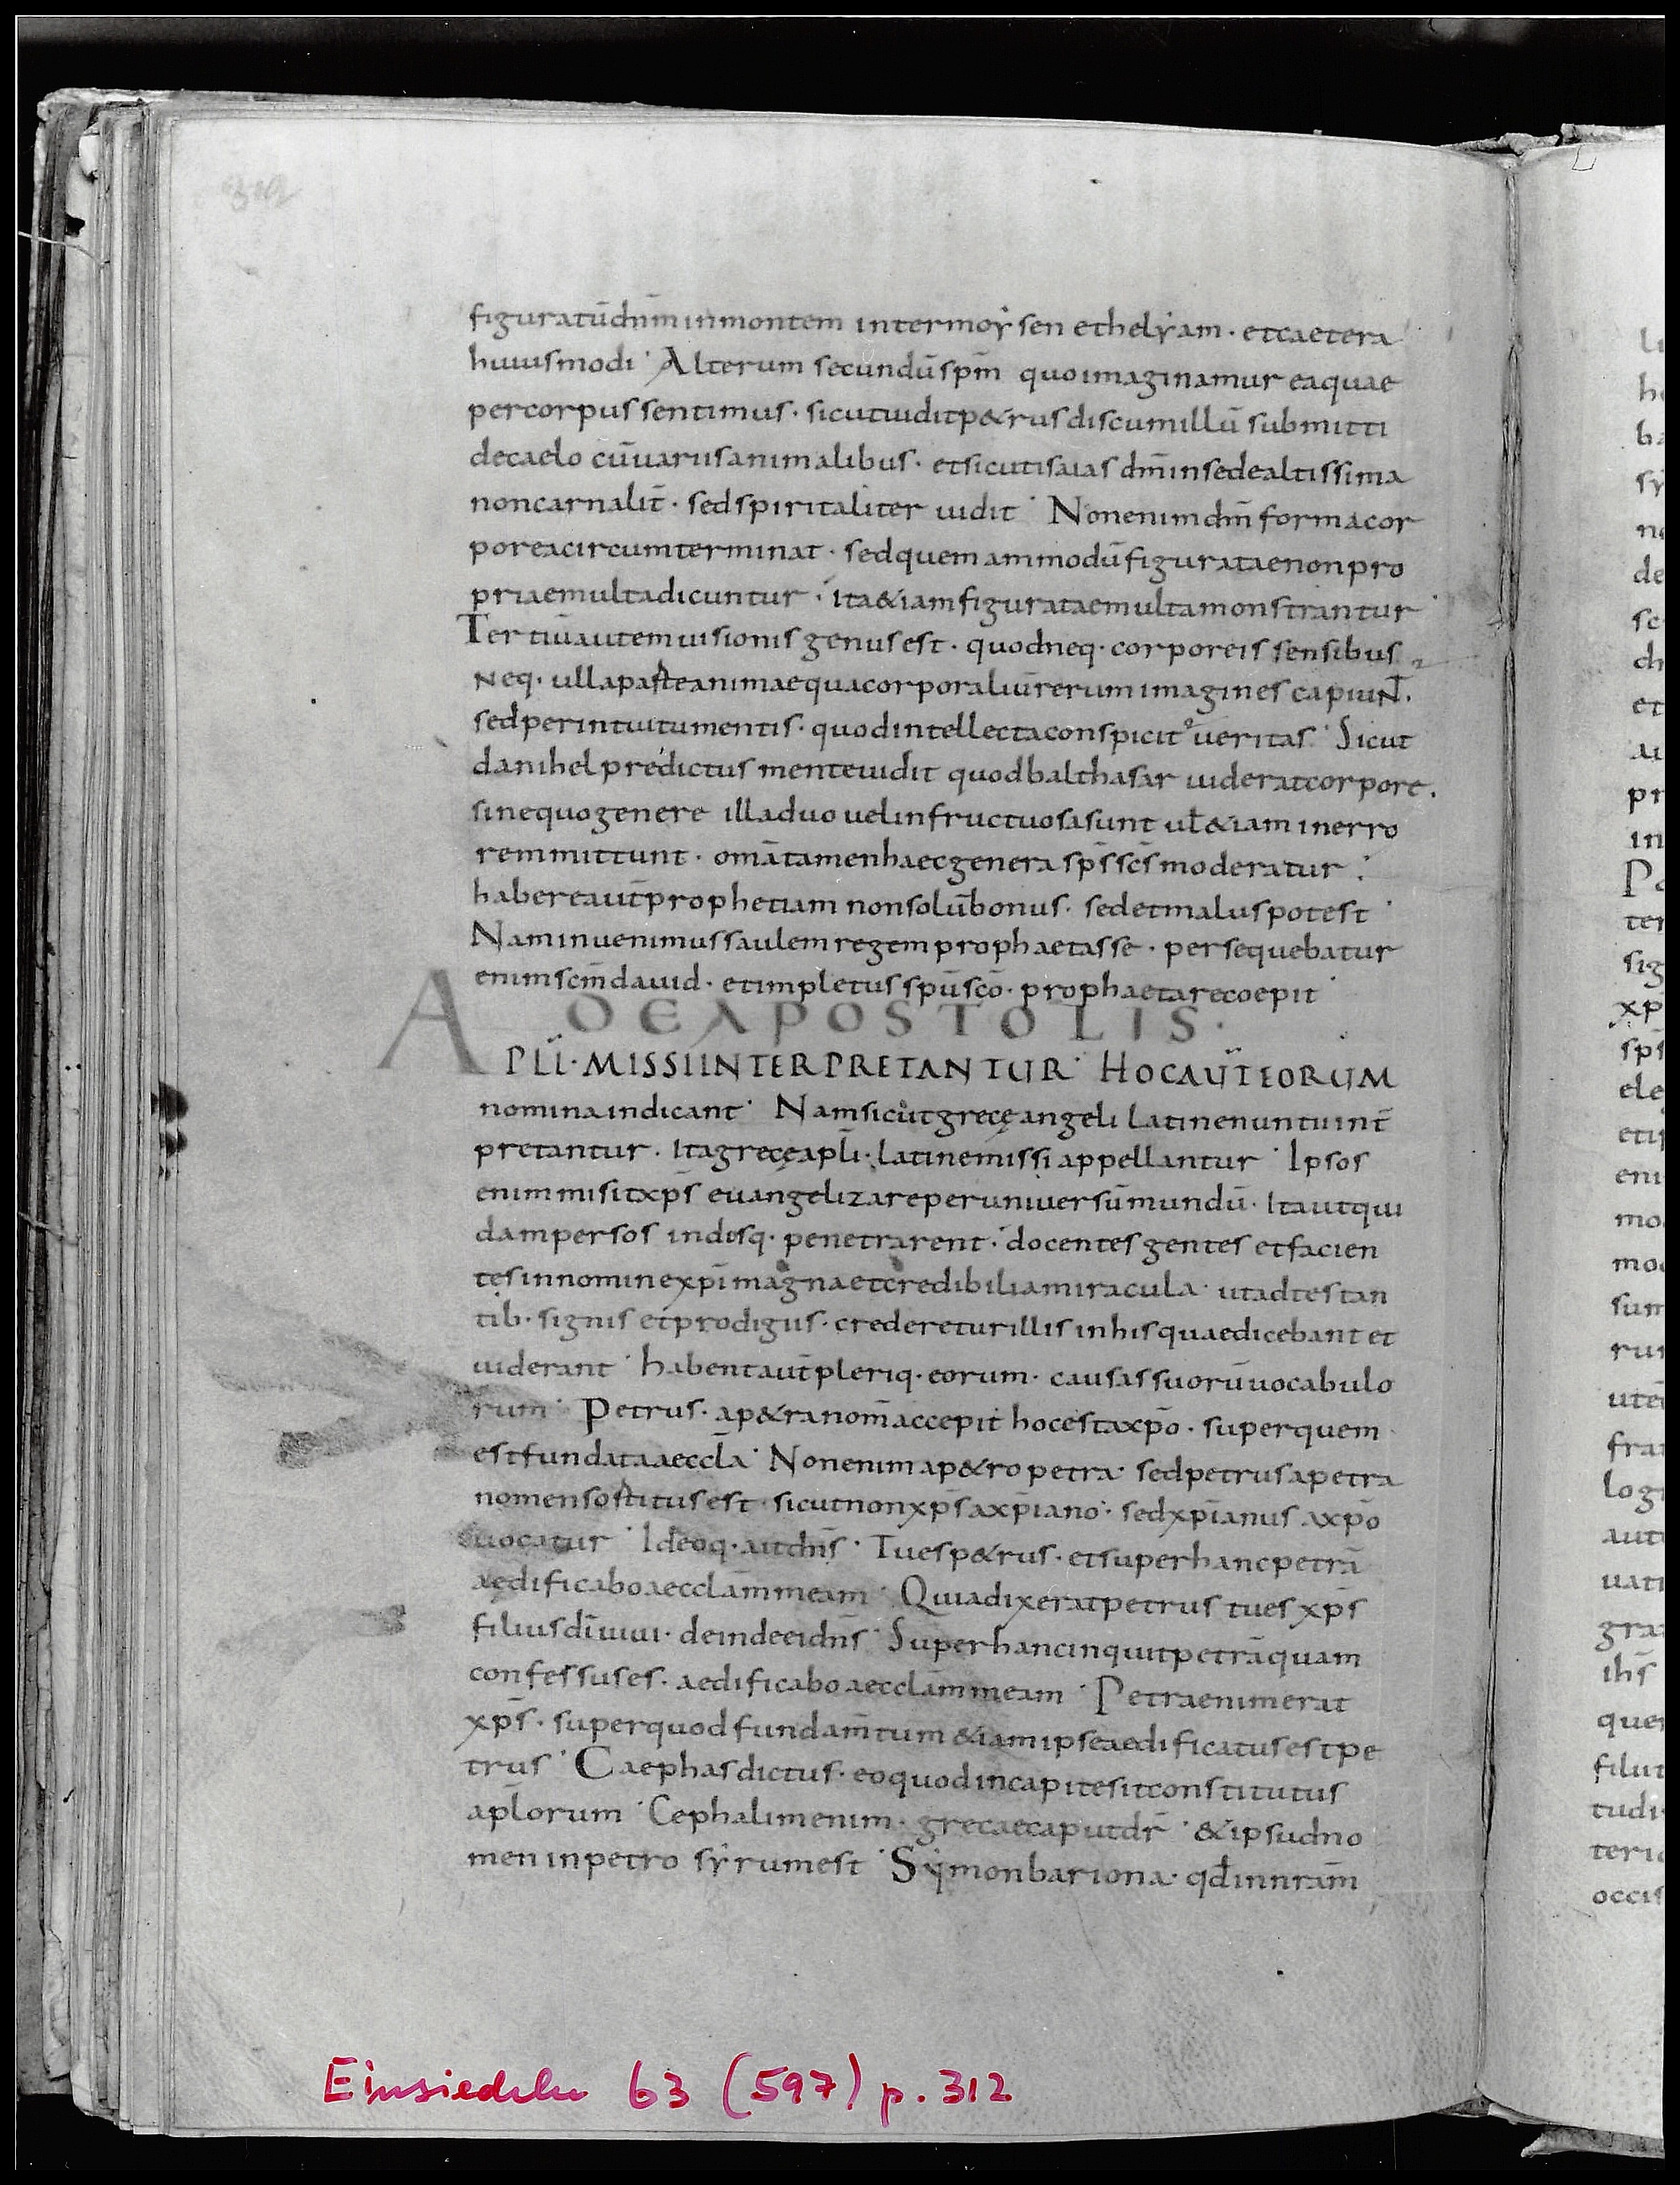 312
figuratū dn̄m in montem inter moẏsen et helẏam · et caetera
huiusmodi · Alterum secundū sp̄m quo imaginamur ea quae
per corpus sentimus · sicut uidit p&rus discum illū submitti
de caelo cū uariis animalibus · et sicut isaias dn̄m in sede altissima
non carnalit̄ · sed spiritaliter uidit · Non enim dn̄m forma cor
porea circumterminat · sed quemammodū figuratae non pro
priae multa dicuntur · ita &iam figuratae multa monstrantur
Tertiū autem uisionis genus est · quod neq· corporeis sensibus
Neq· ulla parte animae qua corporaliū rerum imagines capiuNT̄.
sed per intuitu mentis · quod intellecta conspicit ueritas · Sicut
danihel predictus mente uidit quod balthasar uiderat corpore.
sine quo genere illa duo uel infructuosa sunt ul̄ &iam in erro
rem mittunt · om̄a tamen haec genera sp̄s sc̄s moderatur ·
habere aut̄ prophetiam non solū bonus · sed et malus potest ·
Nam inuenimus saulem regem prophaetasse · persequebatur
enim sc̄m dauid · et impletus sp̄u sc̄o · prophaetare coepit ·
DE APOSTOLIS ·
APLI · MISSI INTERPRETANTUR · HOC AUT̄ EORUM
nomina indicant · Nam sicut grecę angeli Latine nuntii int̄
pretantur · Ita grecę apl̄i · Latine missi appellantur · Ipsos
enim misit xp̄s euangelizare per uniuersū mundū · Ita ut qui
dam persos indosq· penetrarent · docentes gentes et facien
tes in nomine xp̄i magna et credibilia miracula · ut adtestan
tib· signis et prodigiis · crederetur illis in his quae dicebant et
uiderant · habent aut̄ pleriq· eorum · causas suorū uocabulo
rum · Petrus · a p&ra nom̄ accepit hoc est a xp̄o · super quem
est fundata aeccl̄a · Non enim a p&ro petra · sed petrus a petra
nomen sortitus est · sicut non xp̄s a xp̄iano · sed xp̄ianus a xp̄o
uocatur · Ideoq· ait dn̄s · Tu es p&rus · et super hanc petrā
aedificabo aeccl̄am meam · Quia dixerat petrus tu es xp̄s
filius dī uiui · deinde ei dn̄s · Super hanc inquit petrā quam
confessus es · aedificabo aeccl̄am meam · Petra enim erat
xp̄s · super quod fundam̄tum &iam ipse aedificatus est pe
trus · Caephas dictus · eo quod in capite sit constitutus
apl̄orum · Cephalim enim · grecae caput dr̄ · & ipsud no
men in petro sẏrum est · Sẏmon bariona · qd̄ in nr̄am
Einsiedeln 63 (597) p. 312